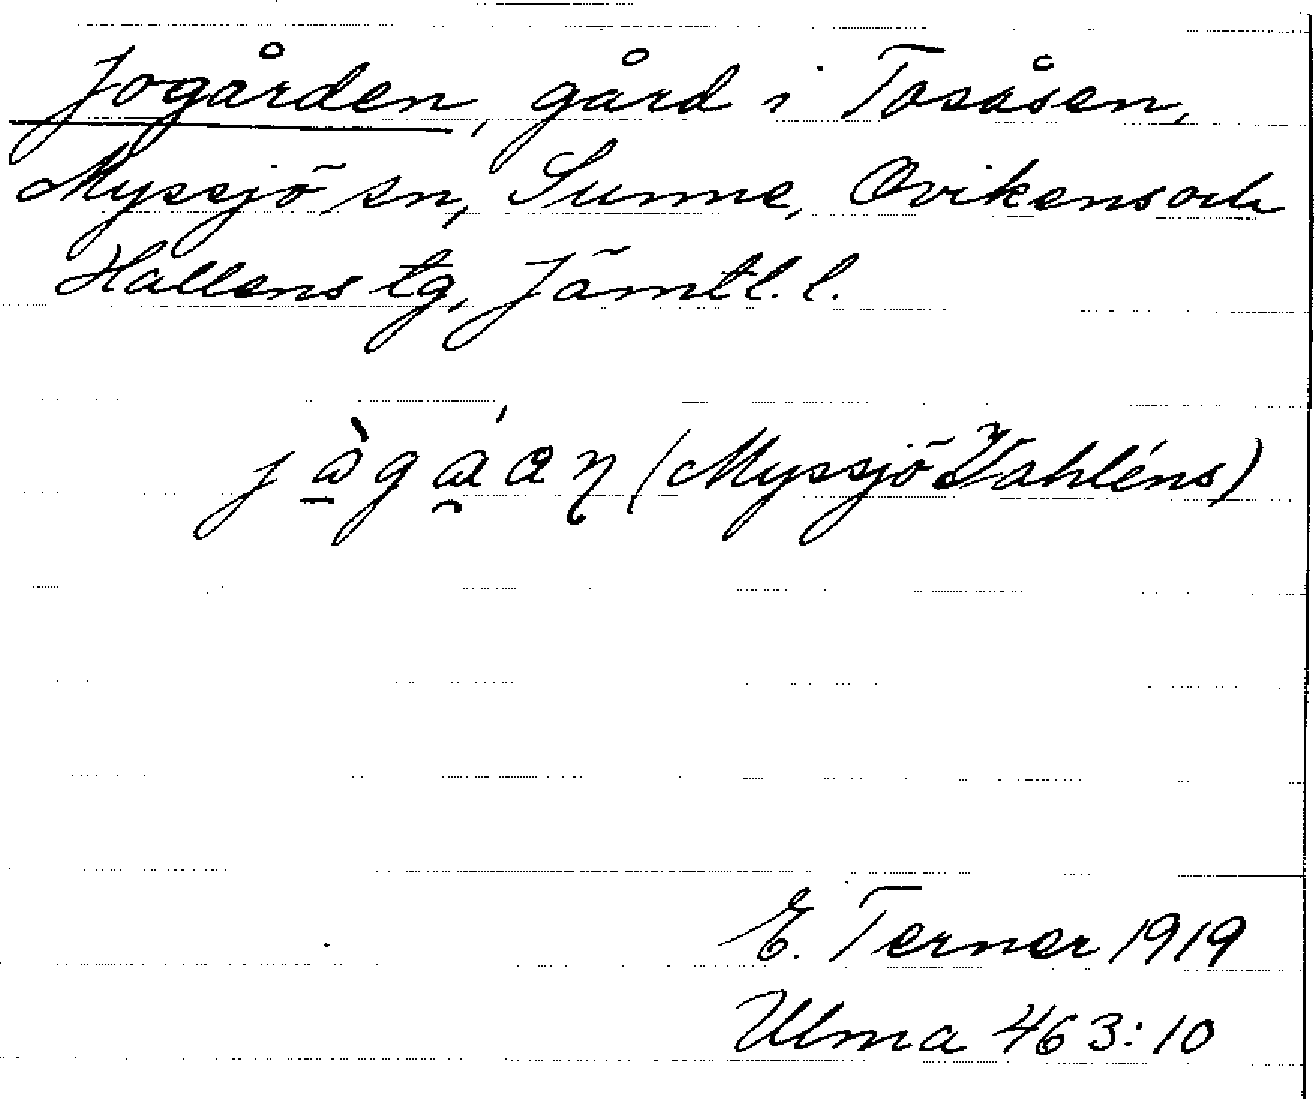 Jogården, gård i Tosåsen,
Myssjö sn, Sunne, Ovikens och
Hallens tg, Jämtl. l.
(Myssjö Vahléns)
E. Terner 1919
Ulma 463:10